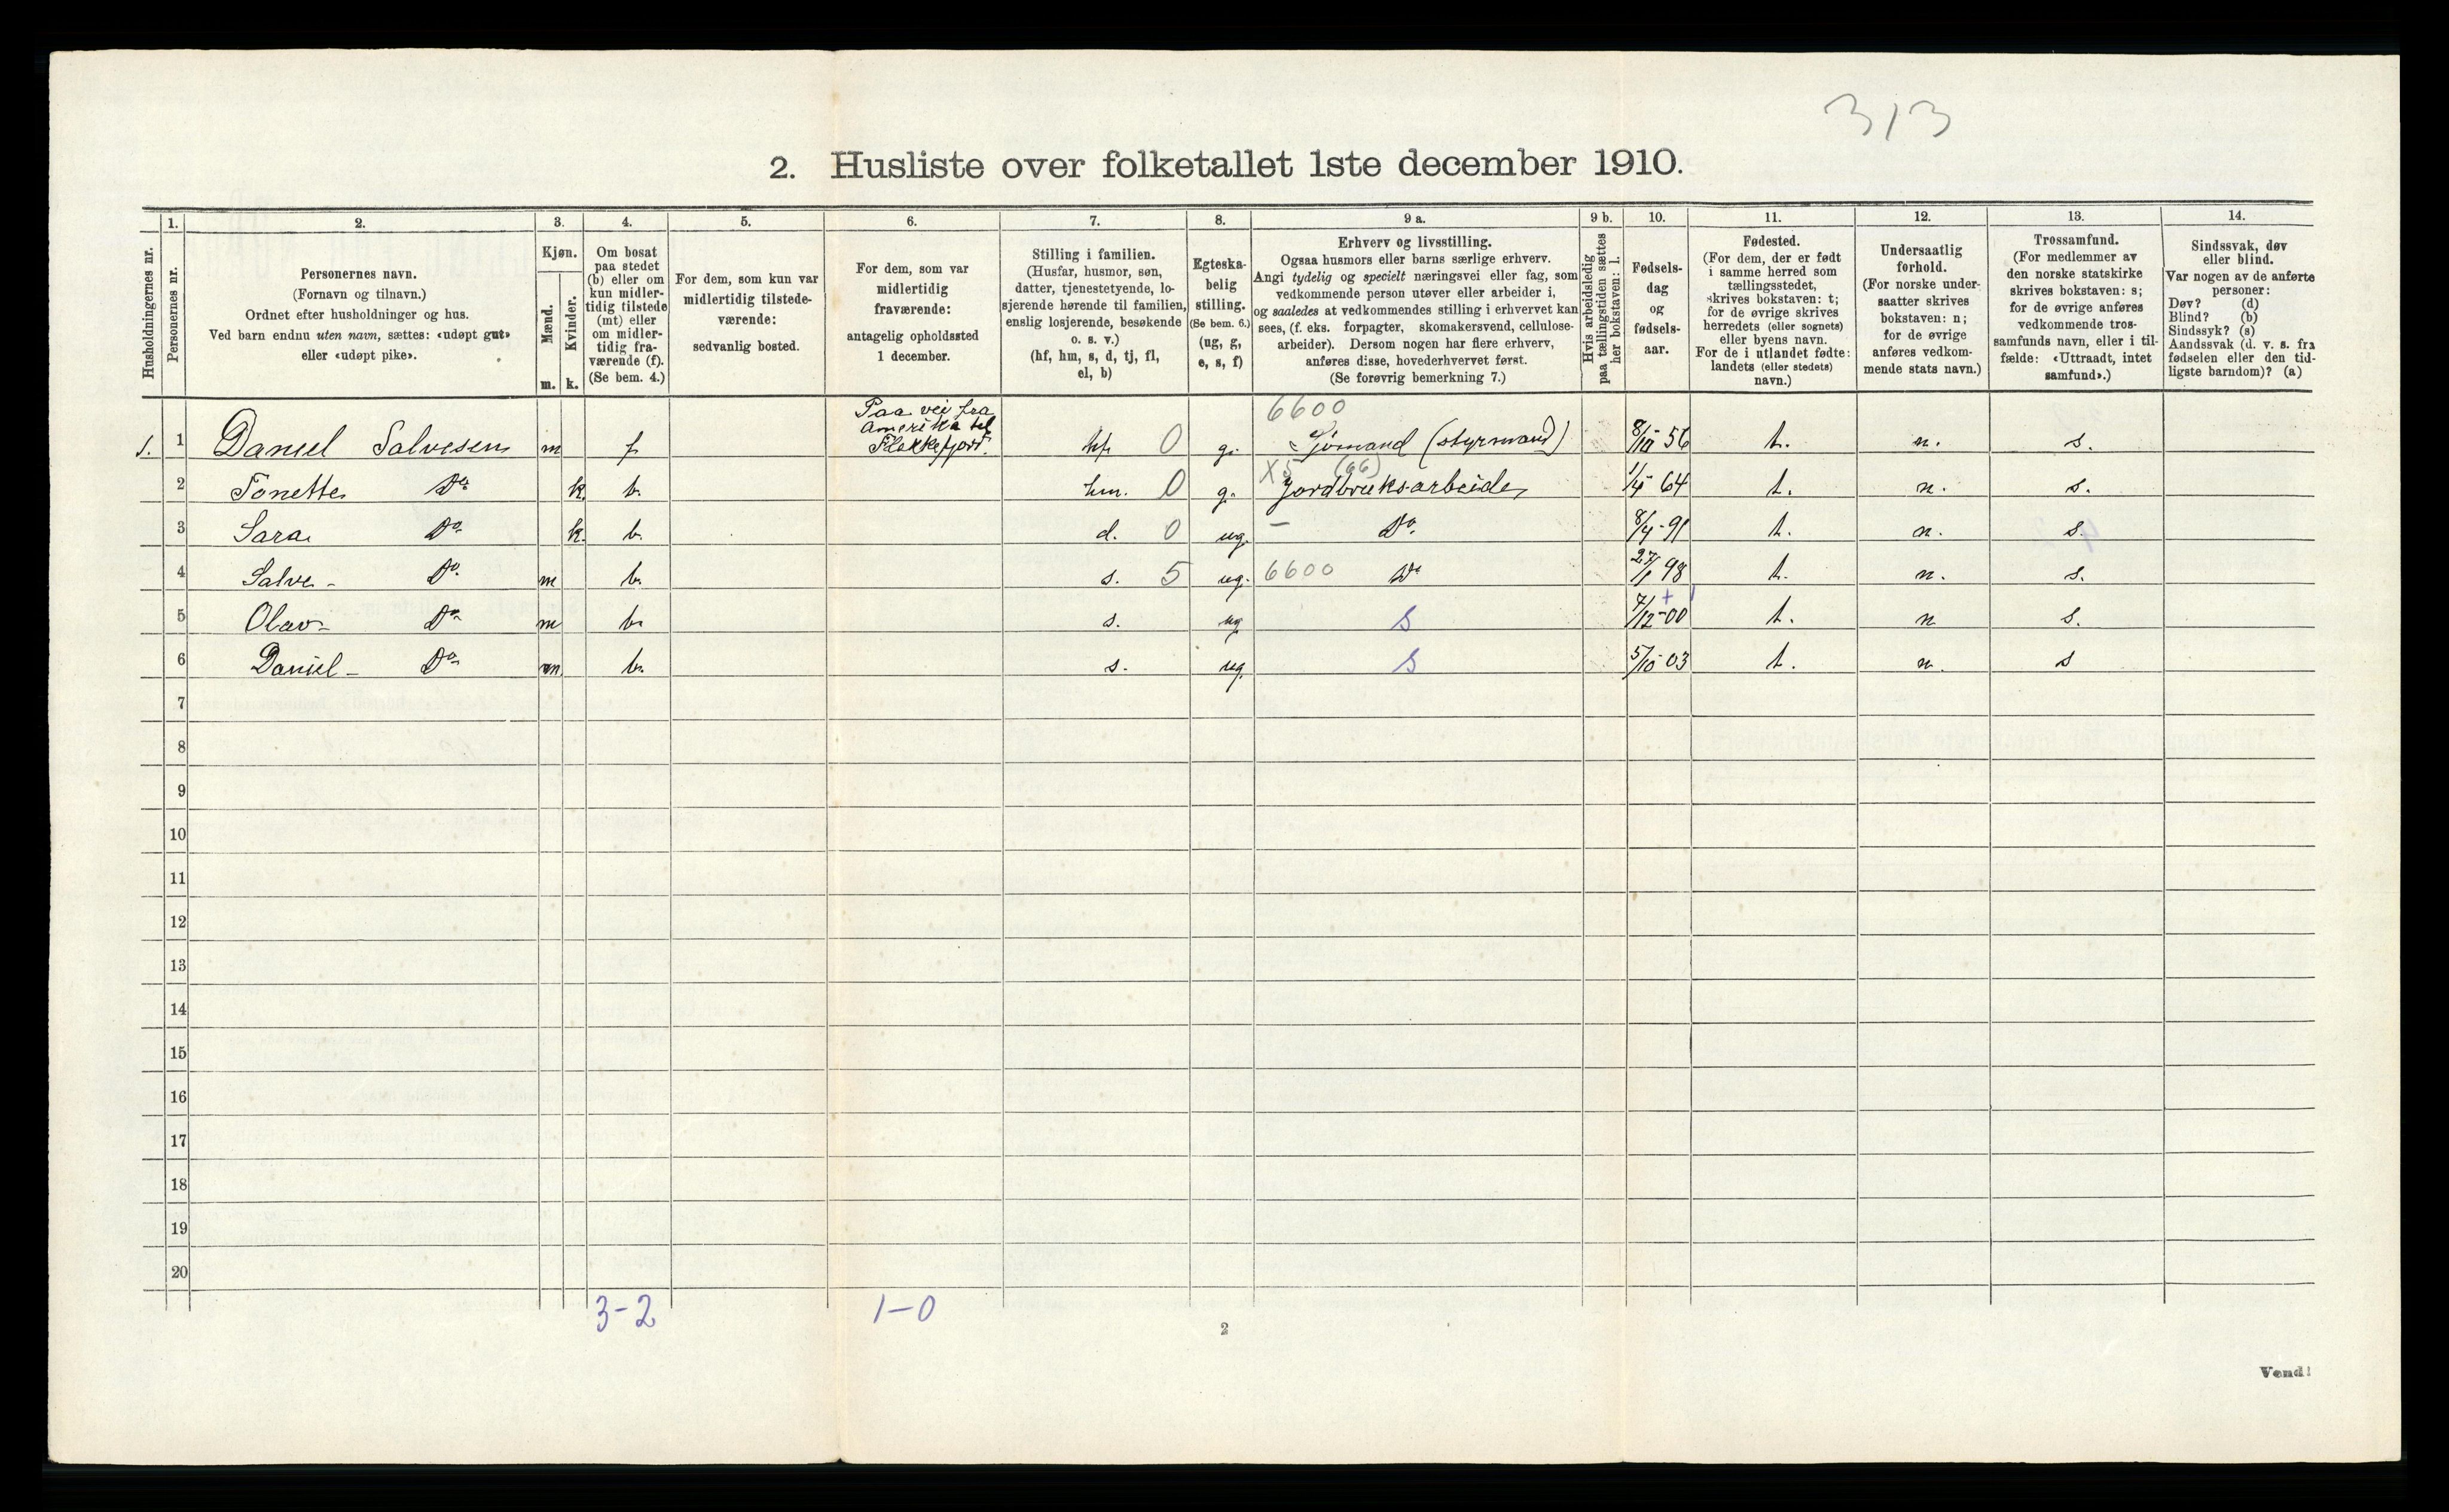 313
2. Husliste over folketallet 1ste december 1910.
Husholdningernes nr.
1.
Personernes nr.
2.
Personernes navn.
(Fornavn og tilnavn.)
Ordnet efter husholdninger og hus.
Ved barn endnu uten navn, sættes: «udøpt gut»
eller «udøpt pike».
3.
Kjøn.
Mænd.
Kvinder.
m.
k.
4.
Om bosat
paa stedet
(b) eller om
kun midler-
tidig tilstede
(mt) eller
om midler-
tidig fra-
værende (f).
(Se bem. 4.)
5.
For dem, som kun var
midlertidig tilstede-
værende:
sedvanlig bosted.
6.
For dem, som var
midlertidig
fraværende:
antagelig opholdssted
1 december.
7.
Stilling i familien.
(Husfar, husmor, søn,
datter, tjenestetyende, lo-
sjerende hørende til familien,
enslig losjerende, besøkende
o. s. v.)
(hf, hm, s, d, tj, fl,
el, b)
8.
Egteska-
belig
stilling.
(Se bem. 6.)
(ug, g,
e, s, f)
9 a.
Erhverv og livsstilling.
Ogsaa husmors eller barns særlige erhverv.
Angi tydelig og specielt næringsvei eller fag, som
vedkommende person utøver eller arbeider i,
og saaledes at vedkommendes stilling i erhvervet kan
sees, (f. eks. forpagter, skomakersvend, cellulose-
arbeider). Dersom nogen har flere erhverv,
anføres disse, hovederhvervet først.
(Se forøvrig bemerkning 7.)
9 b.
Hvis arbeidsledig
paa tællingstiden sættes
her bokstaven: l.
10.
Fødsels-
dag
og
fødsels-
aar.
11.
Fødested.
(For dem, der er født
i samme herred som
tællingsstedet,
skrives bokstaven: t;
for de øvrige skrives
herredets (eller sognets)
eller byens navn.
For de i utlandet fødte:
landets (eller stedets)
navn.)
12.
Undersaatlig
forhold.
(For norske under-
saatter skrives
bokstaven: n;
for de øvrige
anføres vedkom-
mende stats navn.)
13.
Trossamfund.
(For medlemmer av
den norske statskirke
skrives bokstaven: s;
for de øvrige anføres
vedkommende tros-
samfunds navn, eller i til-
fælde: «Uttraadt, intet
samfund».)
14.
Sindssvak, døv
eller blind.
Var nogen av de anførte
personer:
Døv? (d)
Blind? (b)
Sindssyk? (s)
Aandssvak (d. v. s. fra
fødselen eller den tid-
ligste barndom)? (a)
Paa vei fra
Amerika til
Flekkefjord.
6600
1. 1 Daniel Salvesen m f hf 0 g. Sjømand (styrmand) 56 t. n. s.
X5 (66)
2 Tonette Do k. b. hm. 0 g. Jordbruksarbeide 64 t. n. s.
3 Sara Do k. b. d. 0 ug. - Do. 8/4-91 t. n. s.
4 Salve - Do. m b. s. 5 ug. 6600 Do 27/1 98 t. n. s.
5 Olav - Do m b. s. ug. S 7/12-00 t. n s.
6 Daniel - Do m. b. s. ug. S 5/10 03 t. n. s
7
8
9
10
11
12
13
14
15
16
17
18
19
20
3-2
1-0
2
Vend!